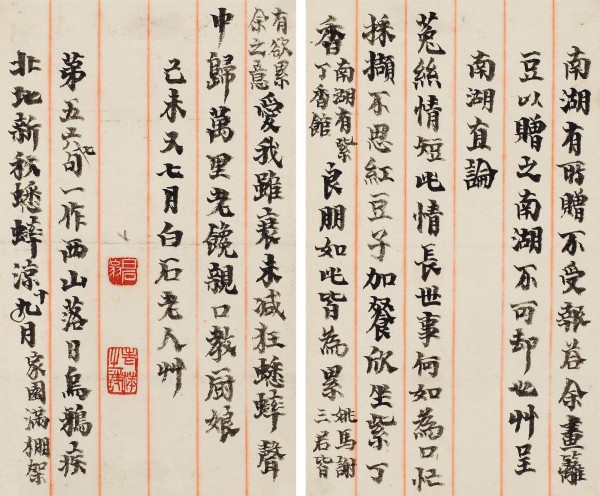 南湖有所贈不受報答余畫籬
豆以贈之南湖不可却也艸呈
南湖直論
菟絲情短此情長世事何如為口忙
採擷不思紅豆子加餐欣坐紫丁
香南湖有紫丁香館良朋如此皆為累姚馬謝三君皆
有欲累余之意愛我雖衰未減狂蟋蟀聲
中歸萬里老饞親口教廚娘
己未又七月白石老人艸
第五六七句一作西山落日烏鴉疾
北地新秋蟋蟀涼十九月家園滿棚架